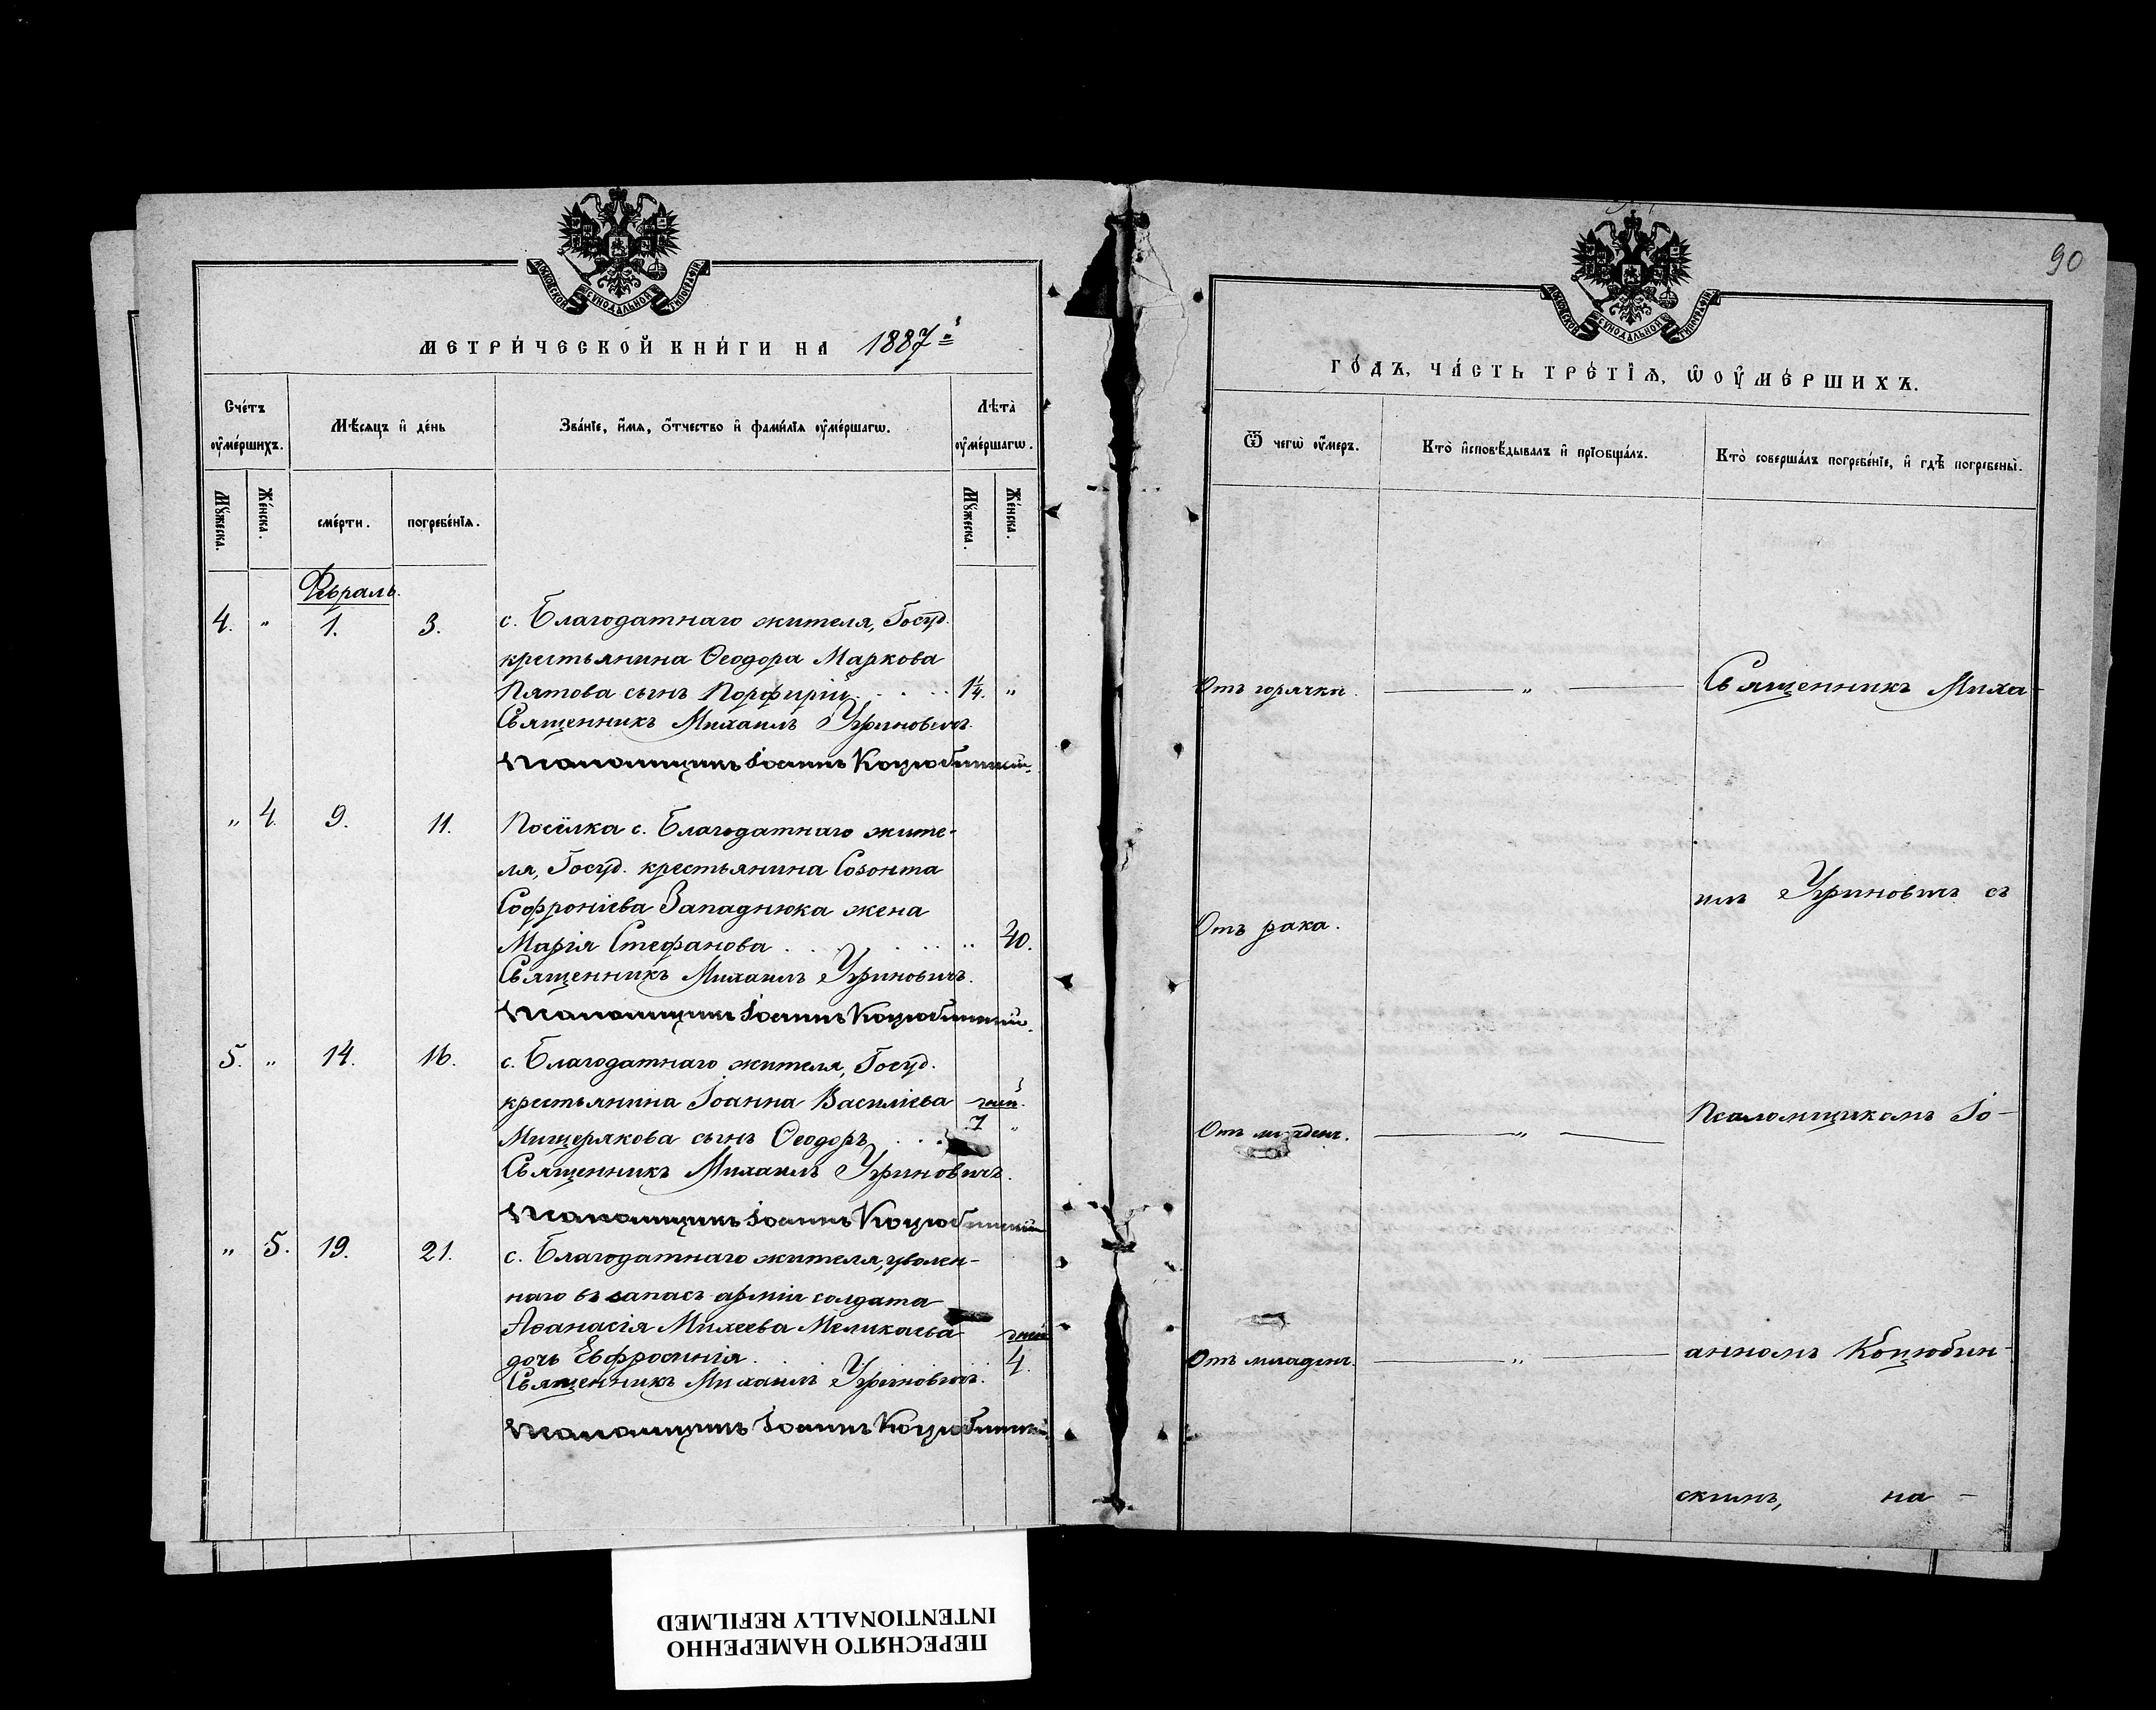 МОСКОВСКОЙ СѴНОДАЛЬНОЙ ТИПОГРАФІИ
МЕТРИ́ЧЕСКОЙ КНИ́ГИ НА 1887-й
Сче́тъ оу҆ме́ршихъ.
Мѣ́сяцъ и҆ де́нь
Зва́нїе, и҆́мя, ѻ҆́тчество и҆ фами́лїя оу҆ме́ршагѡ.
Лѣ́та̀ оу҆ме́ршагѡ.
Мꙋ́жеска.
Же́нска.
сме́рти.
погребе́нїя.
Мꙋ́жеска.
Же́нска.
Февраль.
4. " 1. 3. с. Благодатнаго жителя, Госуд.
крестьянина Ѳеодора Маркова
Пятова сынъ Порфирій . . . . 1¼. "
Священникъ Михаилъ Угриновичъ.
Псаломщикъ Іоаннъ Коцюбинскій.
" 4. 9. 11. Посёлка с. Благодатнаго жите-
ля, Госуд. крестьянина Созонта
Софроніева Западнюка жена
Марія Стефанова . . . . " 40.
Священникъ Михаилъ Угриновичъ.
Псаломщикъ Іоаннъ Коцюбинскій.
5. " 14. 16. с. Благодатнаго жителя, Госуд.
крестьянина Іоанна Василіева дней
Мищерякова сынъ Ѳеодоръ . . . 7 "
Священникъ Михаилъ Угриновичъ.
Псаломщикъ Іоаннъ Коцюбинскій
" 5. 19. 21. с. Благодатнаго жителя, уволен-
наго въ запасъ арміи солдата
Аѳанасія Михеева Меликаева дней
дочь Евфросинія . . . . 4.
Священникъ Михаилъ Угриновичъ.
Псаломщикъ Іоаннъ Коцюбинскій.
90
МОСКОВСКОЙ СѴНОДАЛЬНОЙ ТИПОГРАФІИ
ГО́ДЪ, ЧА́СТЬ ТРЕ́ТІѦ, Ѡ҆ ОУ҆МЕ́РШИХЪ.
Ѿ чегѡ̀ оу҆́меръ.
Кто̀ и҆сповѣ́дывалъ и҆ прїѡбща́лъ.
Кто̀ соверша́лъ погребе́нїе, и҆ гдѣ̀ погребены̀.
Отъ горячки. — " — Священникъ Миха-
Отъ рака. илъ Угриновичъ съ
Отъ младенч. — " — Псаломщикомъ Іо-
Отъ младенч. — " — анномъ Коцюбин-
скимъ, на -
ПЕРЕСНЯТО НАМЕРЕННО
INTENTIONALLY REFILMED